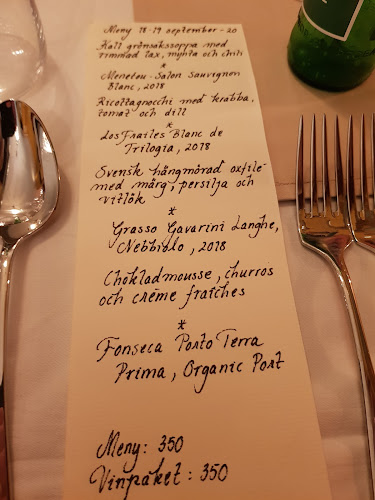 Meny 18-19 september-20
Kall grönsakssoppa med
rimmad lax, mynta och chili
*
Menetou-Salon Sauvignon
Blanc, 2018
Ricottagnocchi med krabba,
tomat och dill
*
Los Frailes Blanc de
Trilogia, 2018
Svensk hängmörad oxfilé
med märg, persilja och
vitlök
*
Grasso Gavarini Langhe,
Nebbiolo, 2018
Chokladmousse, churros
och crème fraîches
*
Fonseca Porto Terra
Prima, Organic Port
Meny: 350
Vinpaket: 350